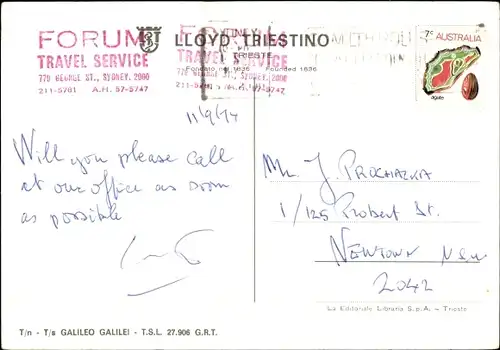 FORUM
TRAVEL SERVICE
779 GEORGE ST., SYDNEY, 2000
211-5701 A.H. 57-5747
LLOYD TRIESTINO
TRIESTE
Fondato nel 1836 Founded 1836
FORUM
TRAVEL SERVICE
779 GEORGE ST., SYDNEY, 2000
211-5701 A.H. 57-5747
7c AUSTRALIA
agate
11/9/74
Will you please call
at our office as soon
as possible
Mr J. PROCHAZKA
1/125 Probert St.
NEWTOWN NSW
2042
La Editoriale Libraria S.p.A. - Trieste
T/n - T/s GALILEO GALILEI - T.S.L. 27.906 G.R.T.